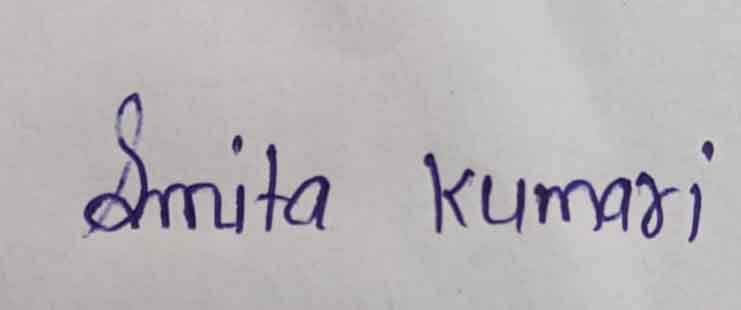 Smita Kumari